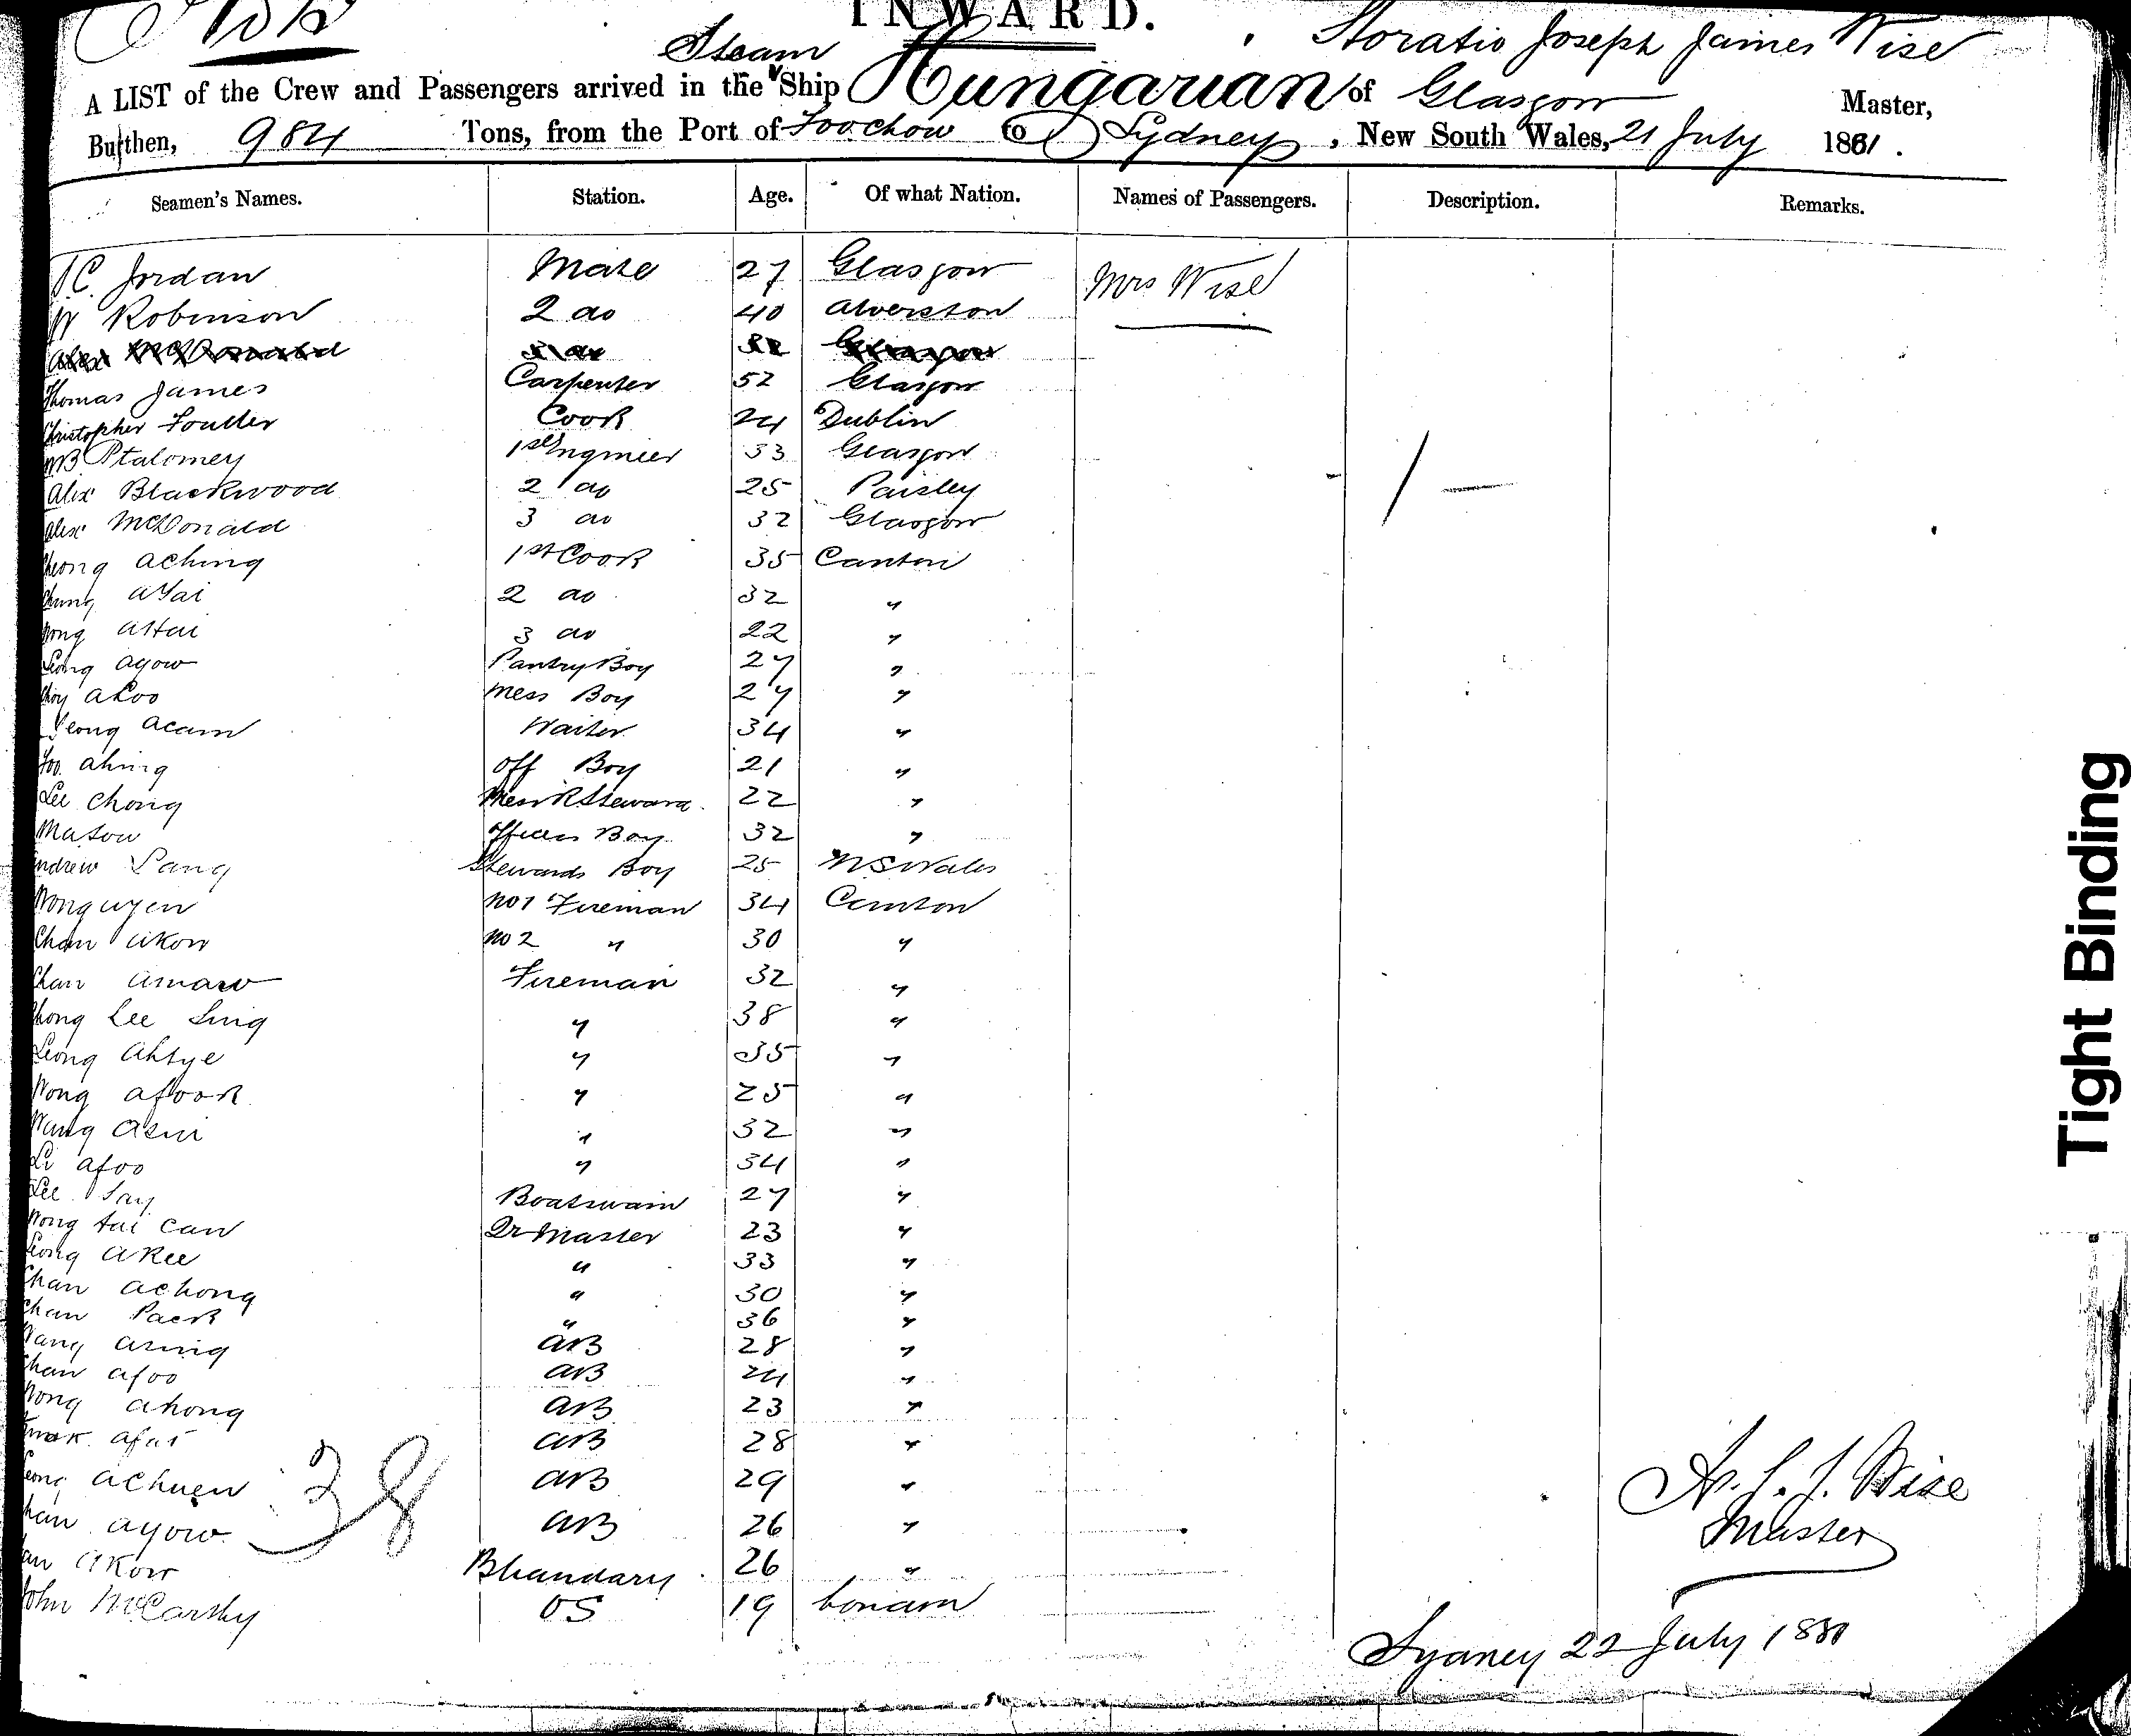 INWARD.
Steam Horatio Joseph James Wise
A LIST of the Crew and Passengers arrived in the Ship Hungarian of Glasgow Master,
Burthen, 984 Tons, from the Port of Foochow to Sydney, New South Wales, 21 July 1881.
Seamen's Names. Station. Age. Of what Nation. Names of Passengers. Description. Remarks.
J.C. Jordan Mate 27 Glasgow Mrs Wise
W Robinson 2 do 40 Ulverston
Alex McDonald 3 do 32 Glasgow
Thomas James Carpenter 52 Glasgow
Christopher Cook 24 Dublin
WB Ptalomey 1st Engineer 33 Glasgow
Alex Blackwood 2 do 25 Paisley
Alex McDonald 3 do 32 Glasgow 1 —
Cheong Aching 1st Cook 35 Canton
Chung AYai 2 do 32 "
Wong Attai 3 do 22 "
Leong Ayow Pantry Boy 27 "
Choy Akoo Mess Boy 27 "
Yeong Acam Waiter 34 "
Foo Ahing Off Boy 21 "
Lee Chong Mess R Steward 22 "
Mason Officers Boy 32 "
Andrew Pang Stewards Boy 25 N S Wales
Wonguyen No 1 Fireman 34 Canton
Chan Akow No 2 " 30 "
Chan Amaw Fireman 32 "
Chong Lee Sing " 38 "
Leong Ahtye " 35 "
Wong Afook " 25 "
Wung Asui " 32 "
Li Afoo " 34 "
Lee Say Boatswain 27 "
Wong tai Can Qr Master 23 "
Leong Akee " 33 "
Chan Achong " 30 "
Chan Pack " 36 "
Wang Asing AB 28 "
Chan Afoo AB 24 "
Wong Ahong AB 23 "
Afat AB 28 "
Leong Achuen AB 29 "
38
Chan Ayow AB 26 "
Akow Bhandary 26 "
John McCarthy OS 19 London
H. J. J. Wise
Master
Sydney 22 July 1881
Tight Binding